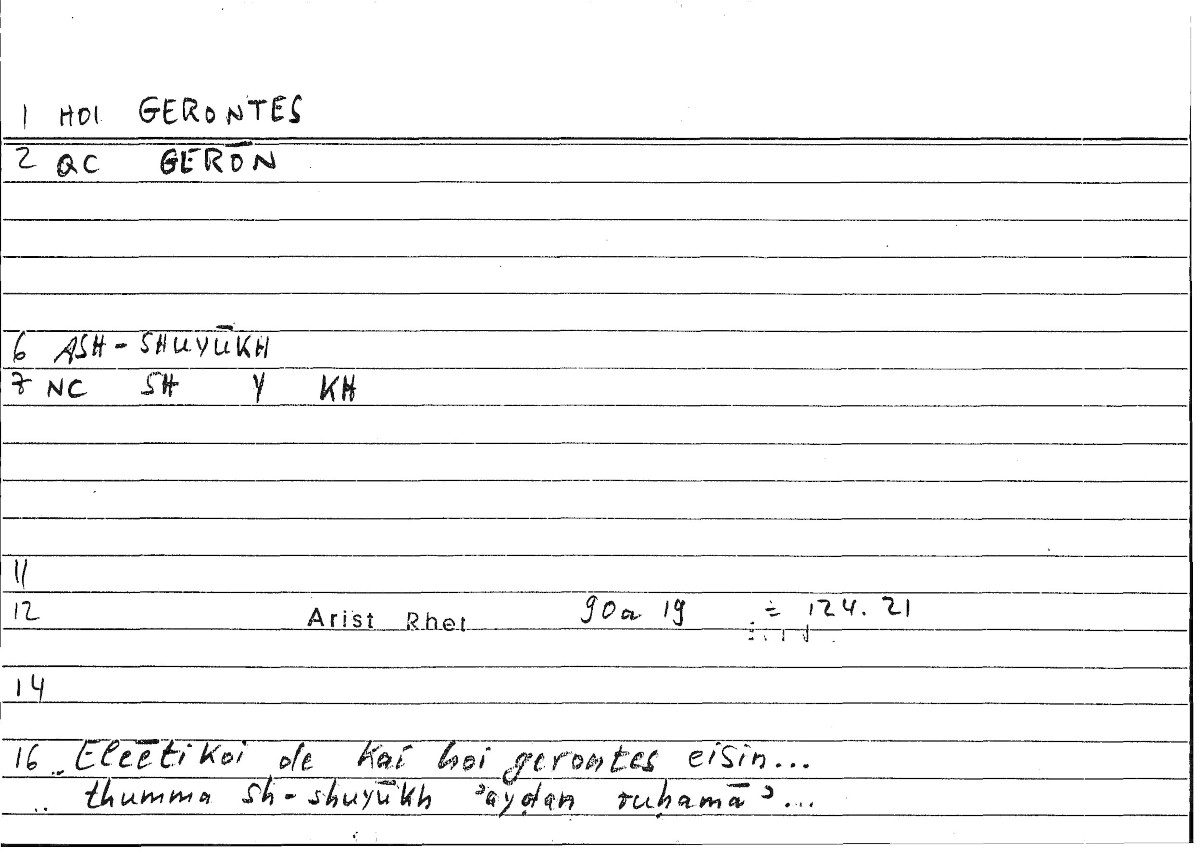 1 HOI GERONTES
2 QC GERŌN
6 ASH-SHUYŪKH
7 NC SH Y KH
11
12 Arist Rhet 90a 19 ÷ 124.21
14
16 .. Eleētikoi de kai hoi gerontes eisin...
.. thumma sh-shuyūkh ʾayḍan ruḥamāʾ...